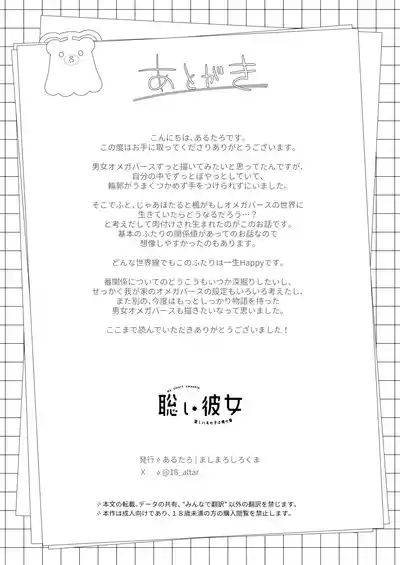 あとがき
こんにちは、あるたろです。
この度はお手に取ってくださりありがとうございます。
男女オメガバースずっと描いてみたいと思ってたんですが、
自分の中でずっとぼやっとしていて、
輪郭がうまくつかめず手をつけられずにいました。
そこでふと、じゃあほたると楓がもしオメガバースの世界に
生きていたらどうなるだろう…?
と考えだして肉付けされ生まれたのがこのお話です。
基本のふたりの関係値があってのお話なので
想像しやすかったのもあります。
どんな世界線でもこのふたりは一生Happyです。
番関係についてのどうこうもいつか深掘りしたいし、
せっかく我が家のオメガバースの設定もいろいろ考えたし、
また別の、今度はもっとしっかり物語を持った
男女オメガバースも描きたいなって思いました。
ここまで読んでいただきありがとうございました！
聡い彼女
発行 # あるたろ | ましまろしろくま
X # @18_altar
# 本文の転載、データの共有、"みんなで翻訳" 以外の翻訳を禁じます。
# 本作は成人向けであり、１８歳未満の方の購入閲覧を禁止します。